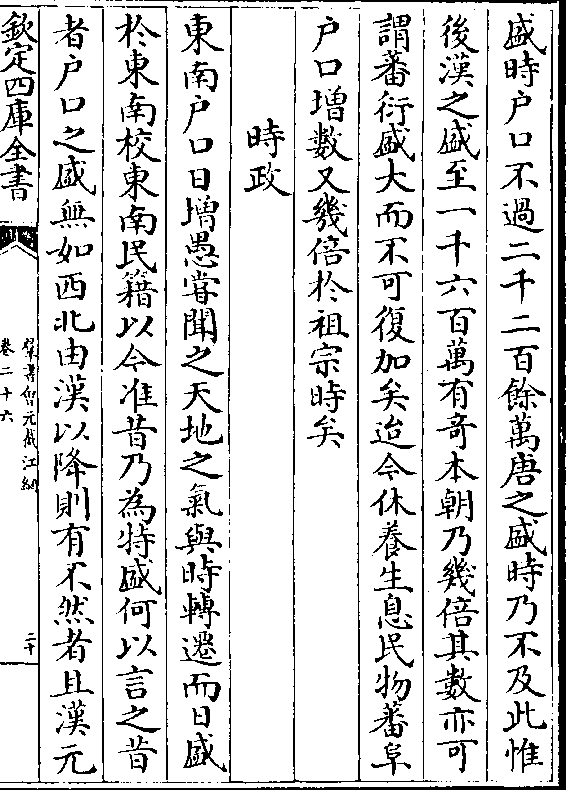 盛時户口不過二千二百餘萬唐之盛時乃不及此惟
後漢之盛至一千六百萬有竒本朝乃幾倍其數亦可
謂蕃衍盛大而不可復加矣迨今休養生息民物蕃阜
户口増數又幾倍於祖宗時矣
時政
東南户口日增愚嘗聞之天地之氣與時轉遷而日盛
於東南校東南民籍以今准昔乃為特盛何以言之昔
者户口之盛無如西北由漢以降則有不然者且漢元
欽定四庫全書
羣書會元截江網
卷二十六
二十